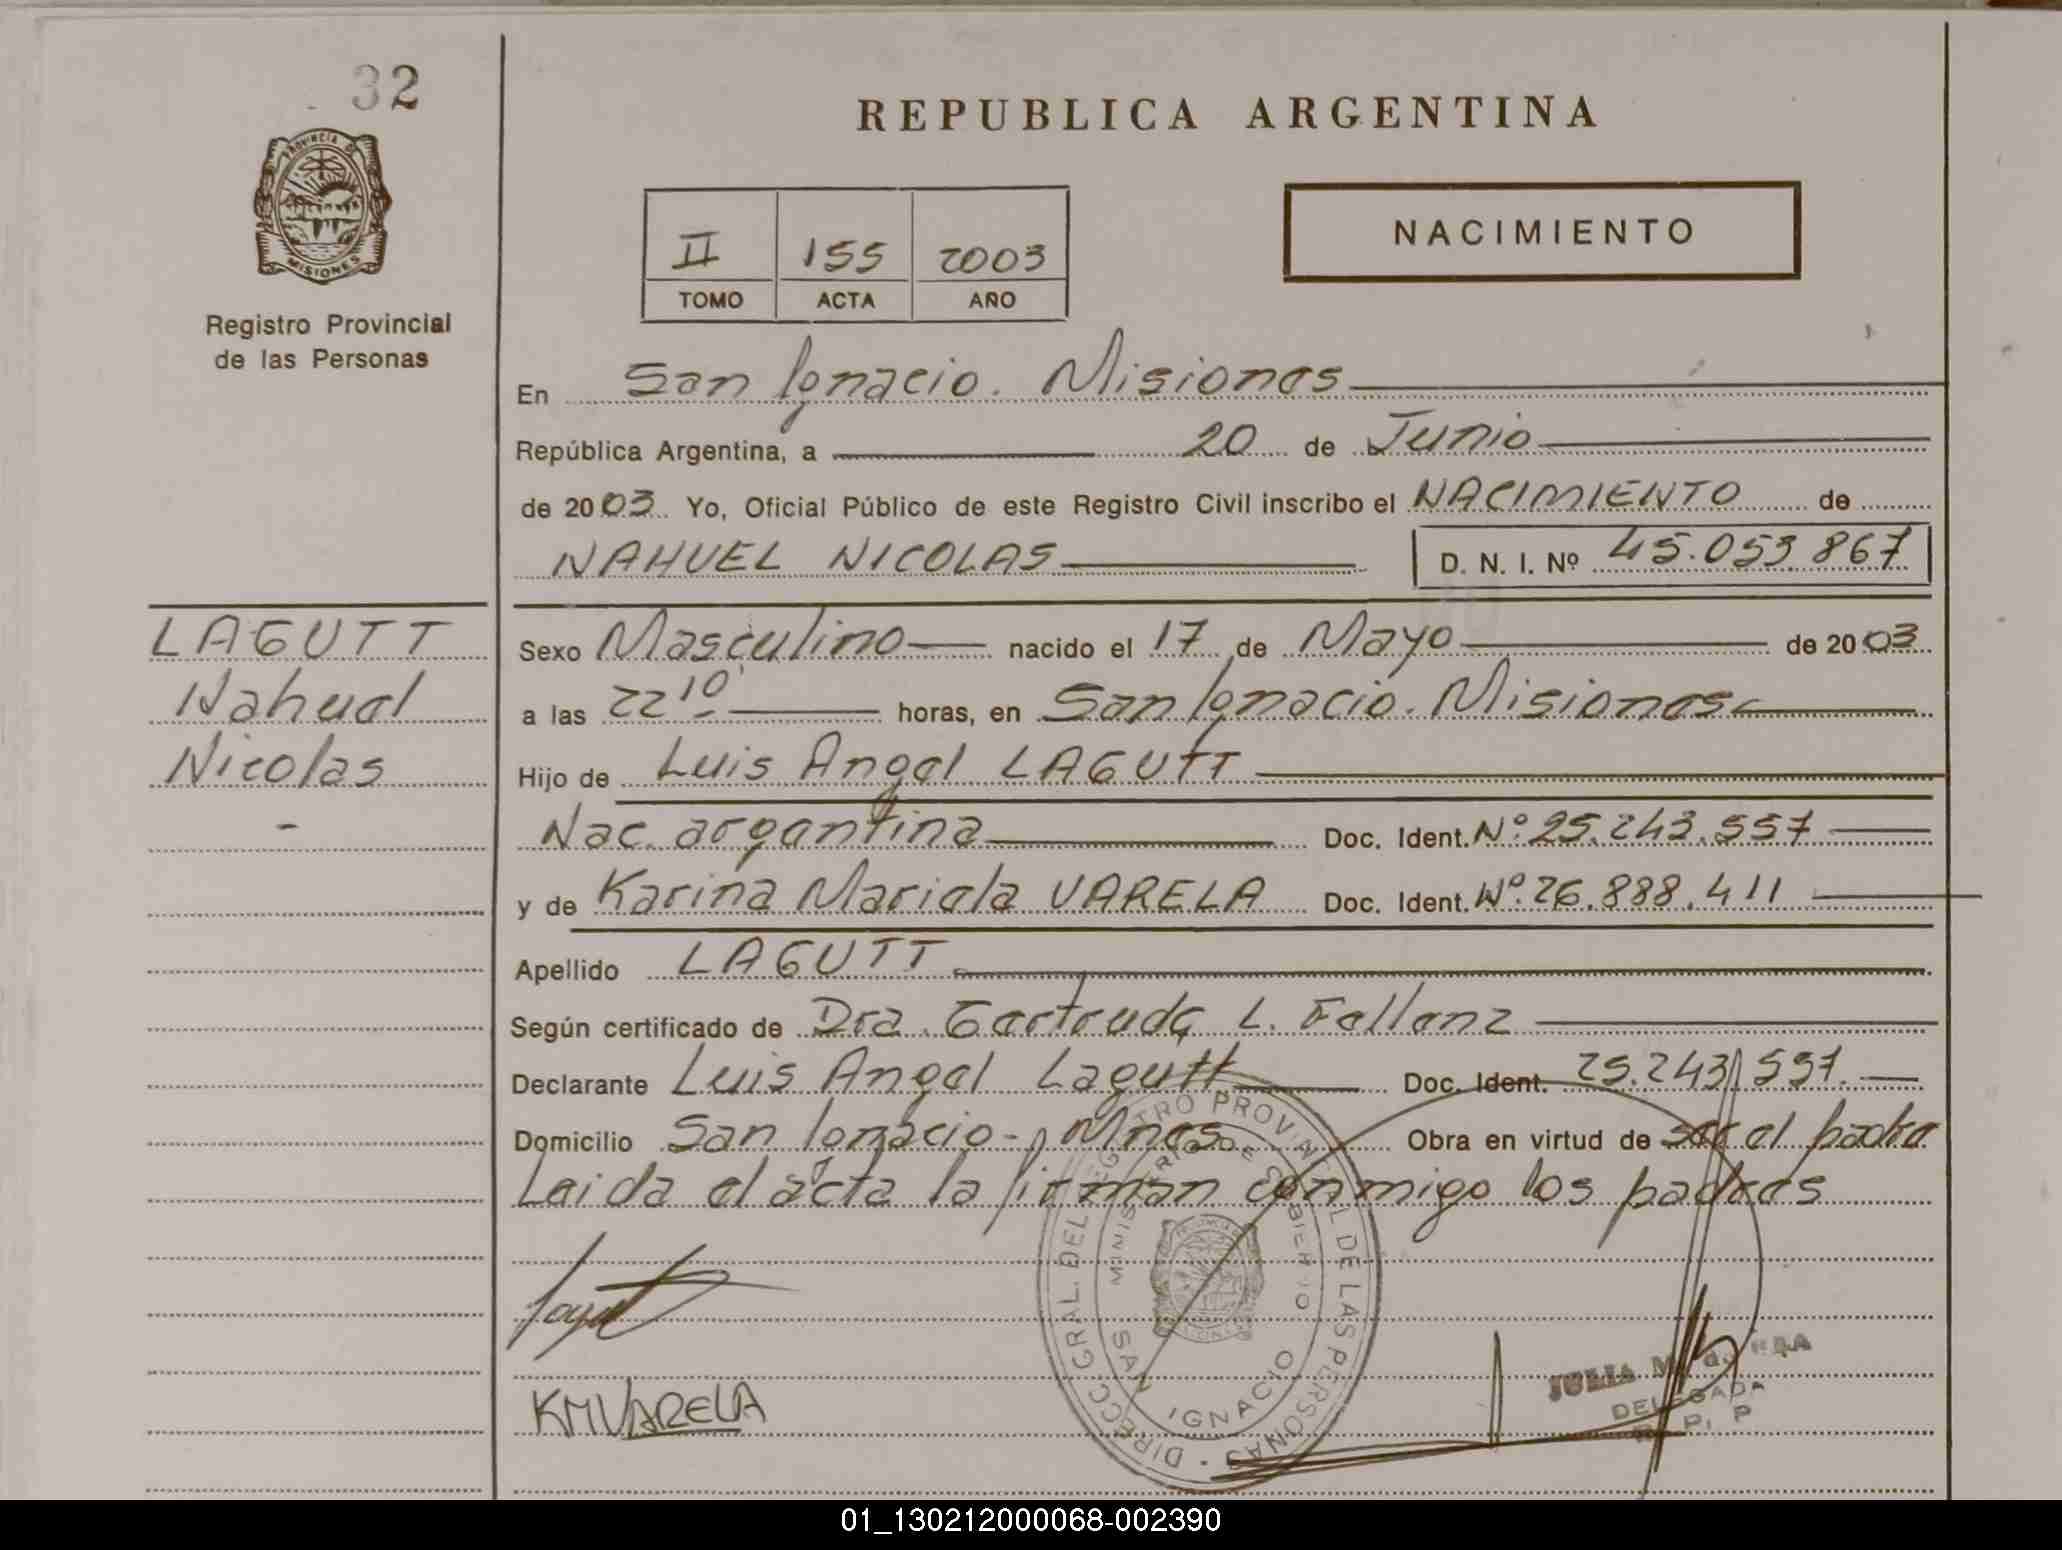 32
PROVINCIA DE
MISIONES
Registro Provincial
de las Personas
REPUBLICA ARGENTINA
II 155 2003
TOMO ACTA AÑO
NACIMIENTO
En San Ignacio. Misiones
República Argentina, a 20 de Junio
de 2003 Yo, Oficial Público de este Registro Civil inscribo el NACIMIENTO de
NAHUEL NICOLAS D. N. I. Nº 45.053.867
LAGUTT
Nahuel
Nicolas
-
Sexo Masculino nacido el 17 de Mayo de 2003
a las 22 10 horas, en San Ignacio. Misiones
Hijo de Luis Angel LAGUTT
Nac. argentina Doc. Ident. Nº 25.243.557
y de Karina Mariela VARELA Doc. Ident. Nº 26.888.411
Apellido LAGUTT
Según certificado de Dra. Gertrude L. Fellenz
Declarante Luis Angel Lagutt Doc. Ident. 25.243.557.
Domicilio San Ignacio - Mnes. Obra en virtud de ser el padre
Leida el acta la firman conmigo los padres
KMVARELA
DIRECC. GRAL. DEL REGISTRO PROVINCIAL DE LAS PERSONAS
MINISTERIO DE GOBIERNO
SAN IGNACIO
JULIA
DELEGADA
R. P. P
01_130212000068-002390